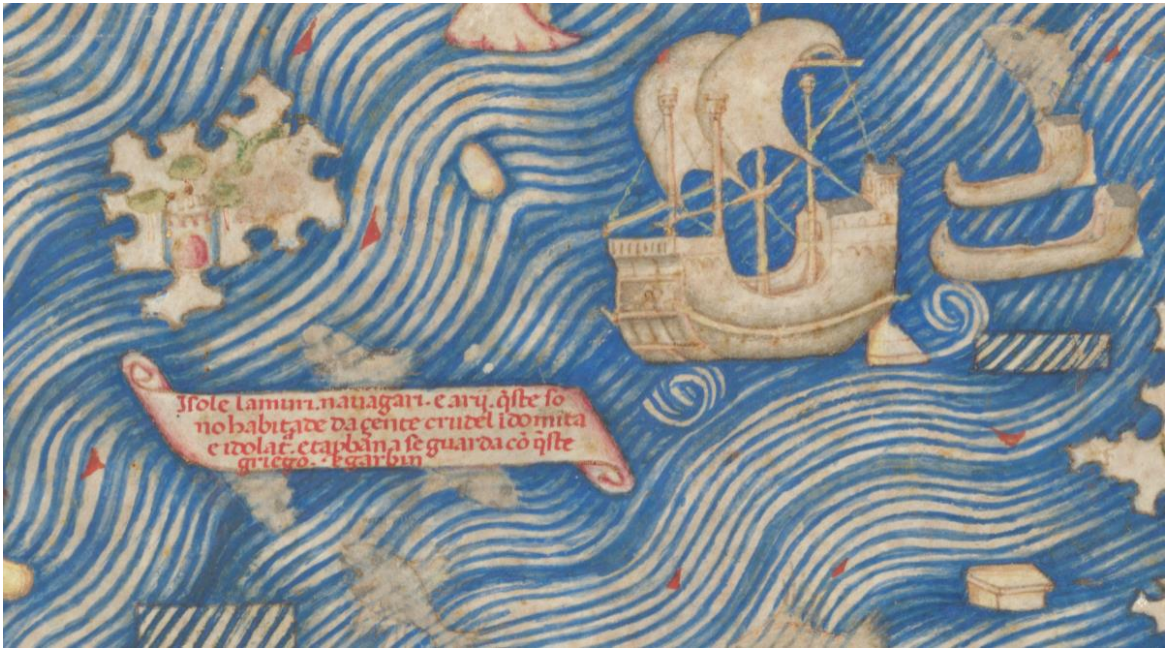 Isole lamuri. nauagari. e arij. q̄ste so
no habitade da çente crudel īdomita
e idolat̄. e tapbāna se guarda cō q̄ste
griego. · e garbin